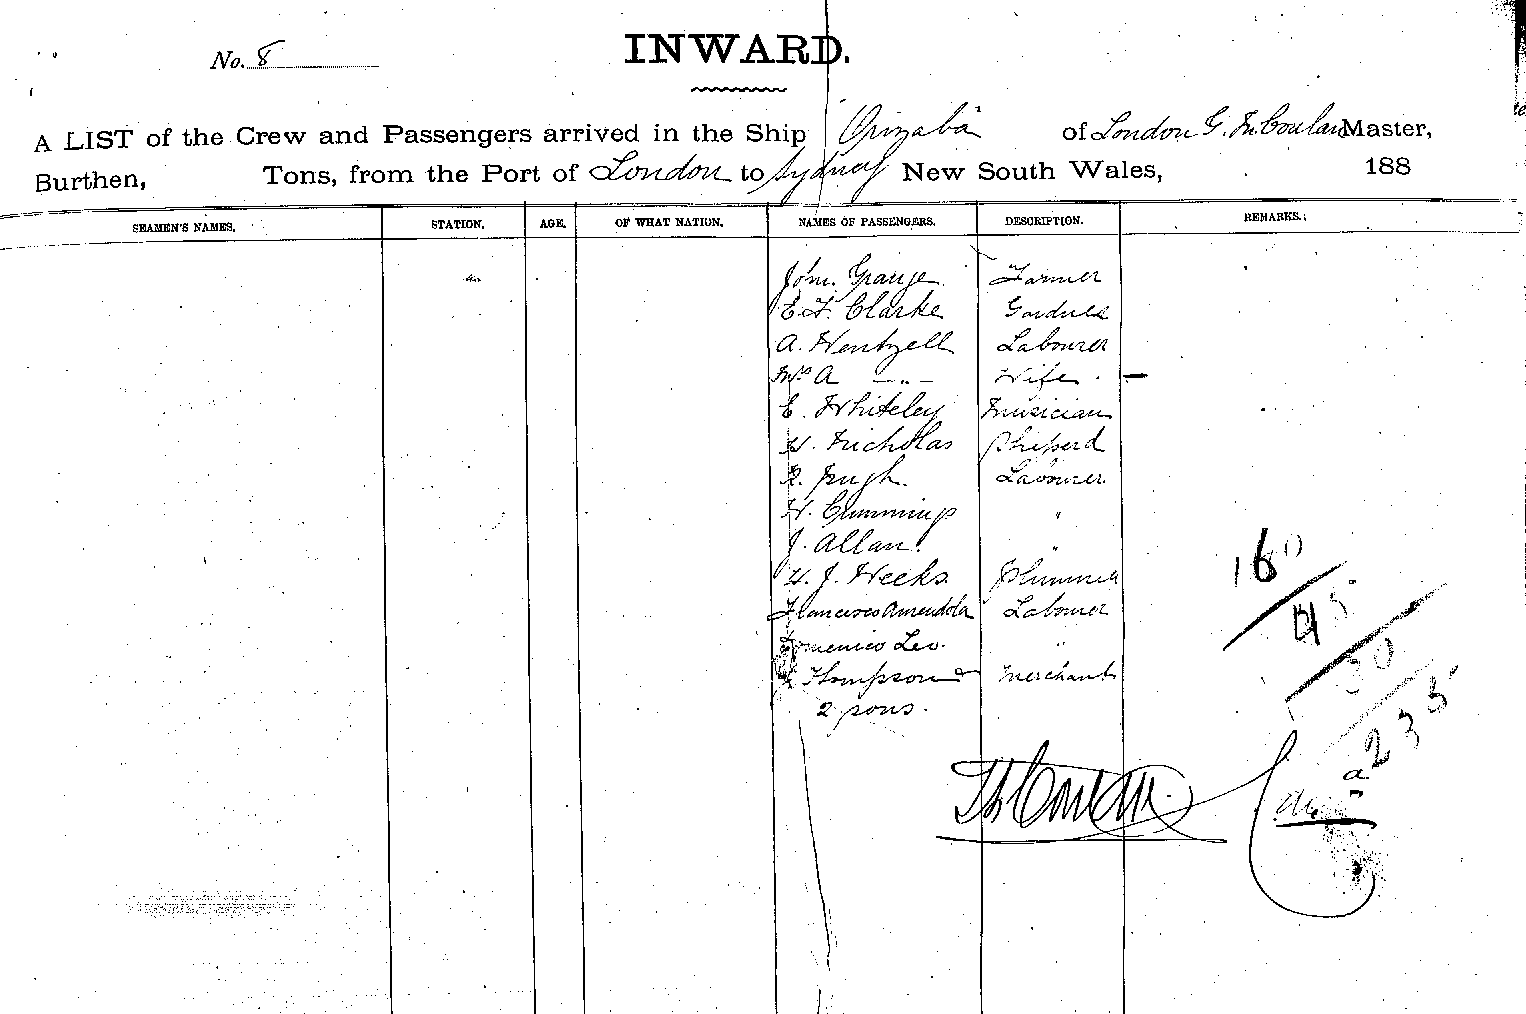 No. 8
INWARD.
A LIST of the Crew and Passengers arrived in the Ship Orizaba of London G. N. Conlan Master,
Burthen, Tons, from the Port of London to Sydney New South Wales, 188
SEAMEN'S NAMES. STATION. AGE. OF WHAT NATION. NAMES OF PASSENGERS. DESCRIPTION. REMARKS.
John Grange Farmer
E. F. Clarke Gardner
A. Wentzell Labourer
Mrs A — " — Wife
E. Whiteley Musician
H. Nicholas Sheperd
R. Pugh. Labourer
H. Cummings "
J. Allan. "
H. J. Weeks Plummer
Francisco Amendola Labourer
Domenico Leo. "
Thompson & Merchant
2 sons.
160
45
30
235